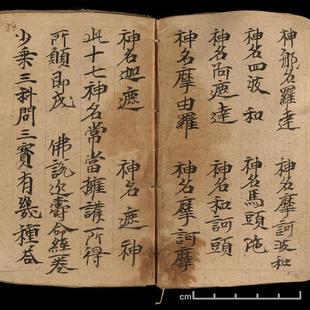 神名那羅達　神名摩訶波和
神名四波和　神名馬頭陀
神名向遮達　神名和訶頭
神名摩由羅　神名摩訶摩
神名迦遮　神名遮神
此十七神名常當擁護所得
所願即成　佛說決壽命經一卷
少乘三科問三寶有幾種答
cm